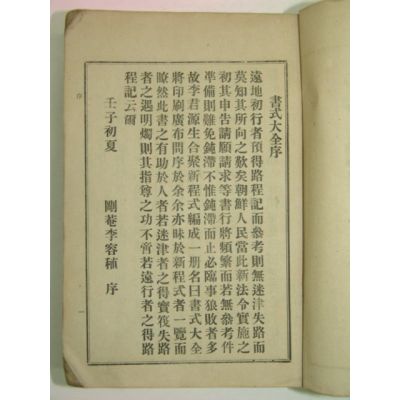 書式大全序
遠地初行者預得路程記而參考則無迷津失路而
莫知其所向之歎矣朝鮮人民當此新法令實施之
初其申告請願請求等書行將頻繁而若無參考件
準備則難免鈍滯不惟鈍滯而止必臨事狼敗者多
故李君源生合聚新程式編成一册名曰書式大全
將印刷廣布問序於余余亦昧於新程式者一覽而
瞭然此書之有助於人者若迷津者之得寶筏失路
者之遇明燭則其指導之功不啻若遠行者之得路
程記云爾
壬子初夏 剛菴李容稙 序
序
一